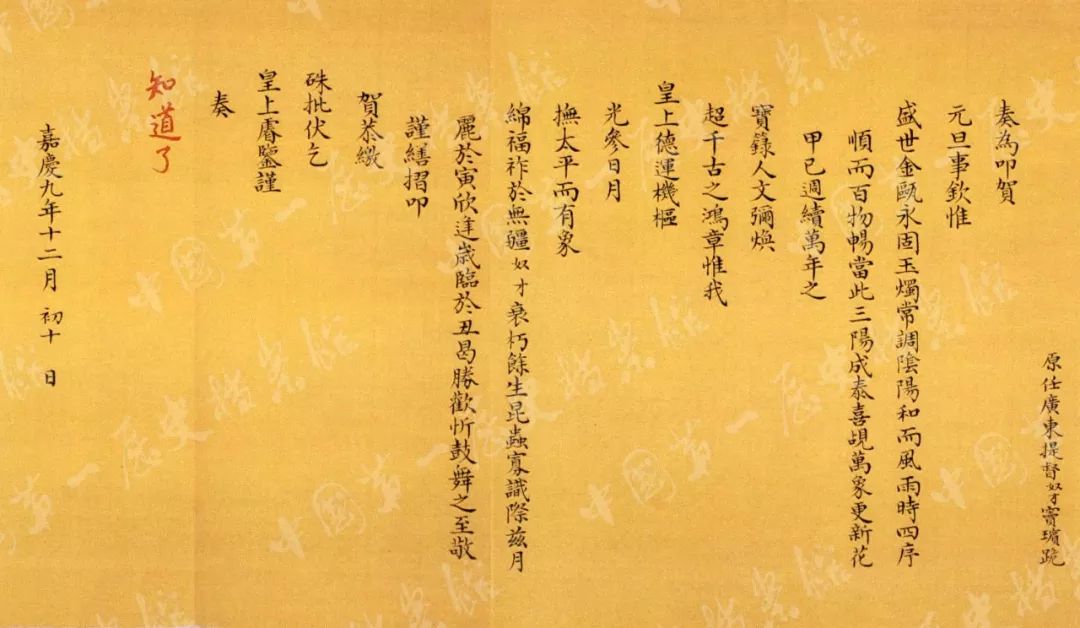 原任廣東提督奴才竇璸跪
奏為叩賀
元旦事欽惟
盛世金甌永固玉燭常調陰陽和而風雨時四序
順而百物暢當此三陽成泰喜覩萬象更新花
甲已週續萬年之
寶籙人文彌煥
超千古之鴻章惟我
皇上德運機樞
光參日月
撫太平而有象
綿福祚於無疆奴才衰朽餘生昆蟲寡識際茲月
麗於寅欣逢歲臨於丑曷勝歡忻鼓舞之至敬
謹繕摺叩
賀恭繳
硃批伏乞
皇上睿鑒謹
奏
知道了
嘉慶九年十二月 初十 日
中國第一歷史檔案館